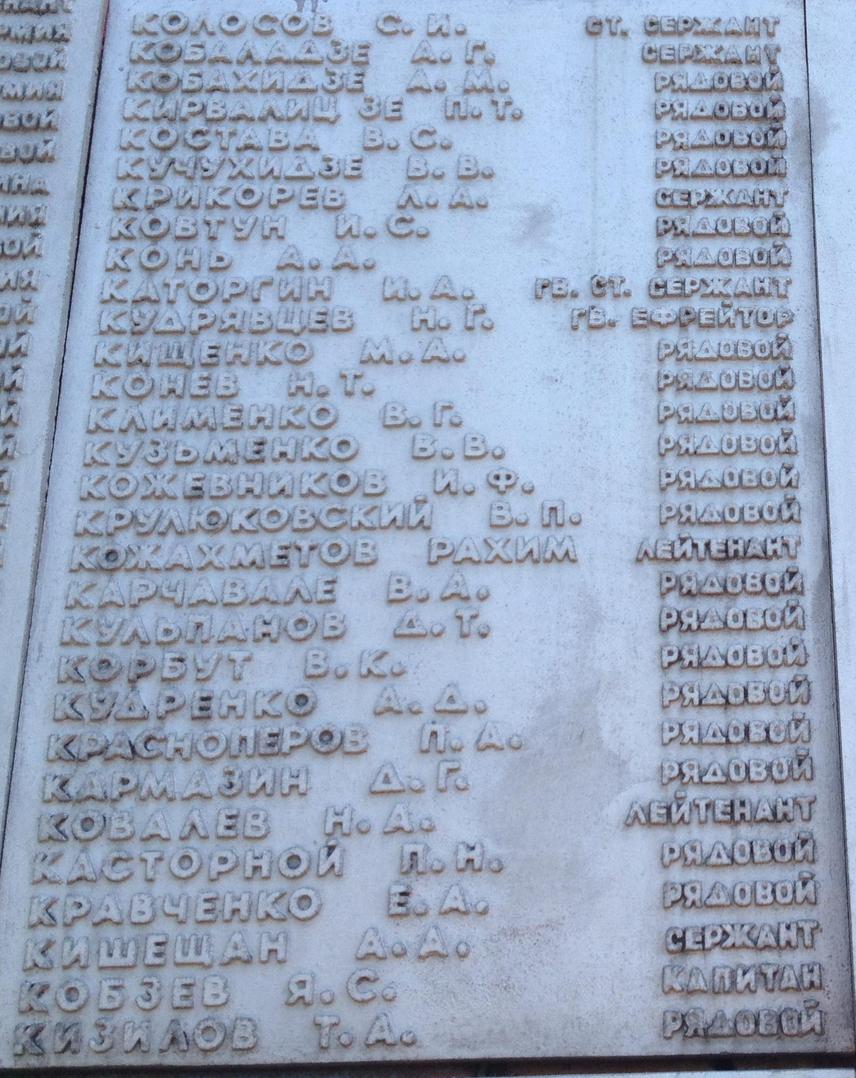 КОЛОСОВ С. И. СТ. СЕРЖАНТ
КОБАЛАДЗЕ А. Г. СЕРЖАНТ
КОБАХИДЗЕ А. М. РЯДОВОЙ
КИРВАЛИЦ ЗЕ П. Т. РЯДОВОЙ
КОСТАВА В. С. РЯДОВОЙ
КУЧУХИДЗЕ В. В. РЯДОВОЙ
КРИКОРЕВ Л. А. СЕРЖАНТ
КОВТУН И. С. РЯДОВОЙ
КОНЬ А. А. РЯДОВОЙ
КАТОРГИН И. А. ГВ. СТ. СЕРЖАНТ
КУДРЯВЦЕВ Н. Г. ГВ. ЕФРЕЙТОР
КИЩЕНКО М. А. РЯДОВОЙ
КОНЕВ Н. Т. РЯДОВОЙ
КЛИМЕНКО В. Г. РЯДОВОЙ
КУЗЬМЕНКО В. В. РЯДОВОЙ
КОЖЕВНИКОВ И. Ф. РЯДОВОЙ
КРУЛЮКОВСКИЙ В. П. РЯДОВОЙ
КОЖАХМЕТОВ РАХИМ ЛЕЙТЕНАНТ
КАРЧАВАЛЕ В. А. РЯДОВОЙ
КУЛЬПАНОВ Д. Т. РЯДОВОЙ
КОРБУТ В. К. РЯДОВОЙ
КУДРЕНКО А. Д. РЯДОВОЙ
КРАСНОПЕРОВ П. А. РЯДОВОЙ
КАРМАЗИН Д. Г. РЯДОВОЙ
КОВАЛЕВ Н. А. ЛЕЙТЕНАНТ
КАСТОРНОЙ П. Н. РЯДОВОЙ
КРАВЧЕНКО Е. А. РЯДОВОЙ
КИШЕЩАН А. А. СЕРЖАНТ
КОБЗЕВ Я. С. КАПИТАН
КИЗИЛОВ Т. А. РЯДОВОЙ